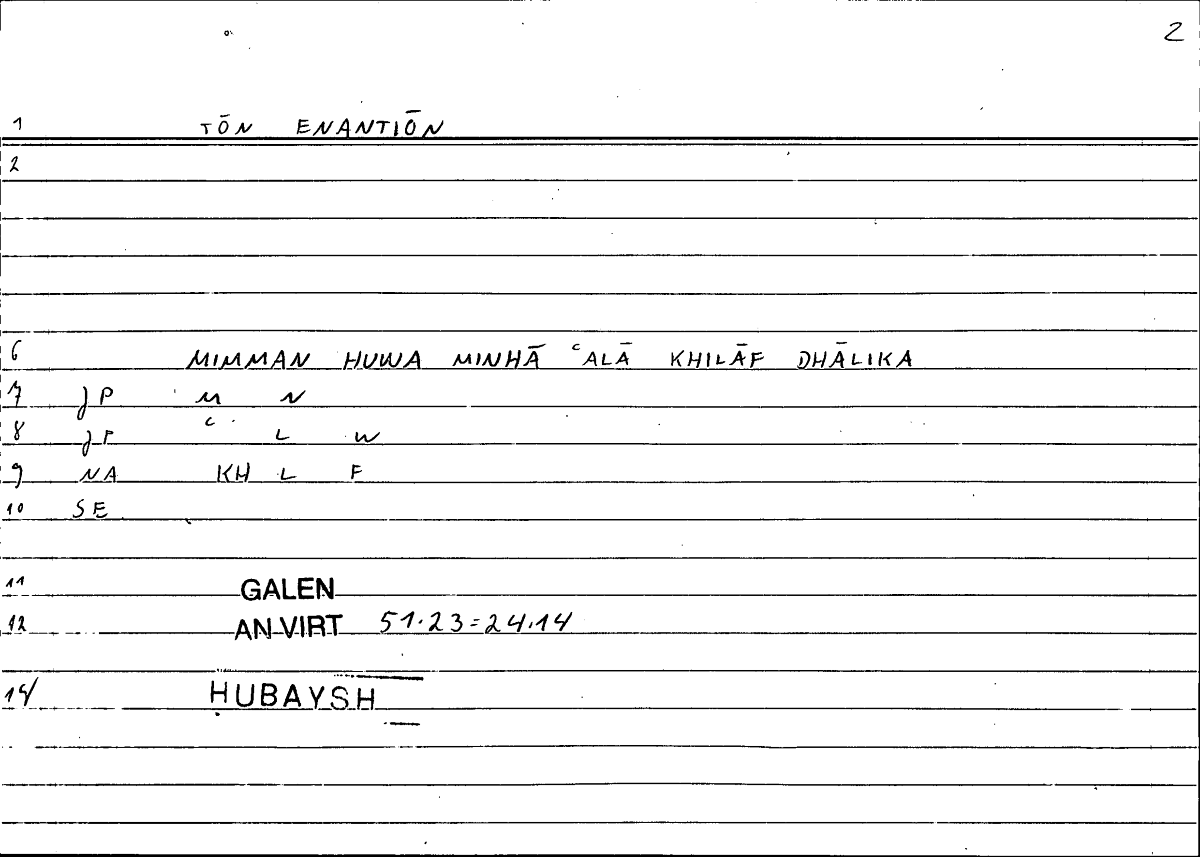 2
1 TŌN ENANTIŌN
2
6 MIMMAN HUWA MINHĀ ʿALĀ KHILĀF DHĀLIKA
7 JP M N
8 JP ʿ L W
9 NA KH L F
10 SE
11 GALEN
12 AN VIRT 51.23=24.14
14/ HUBAYSH